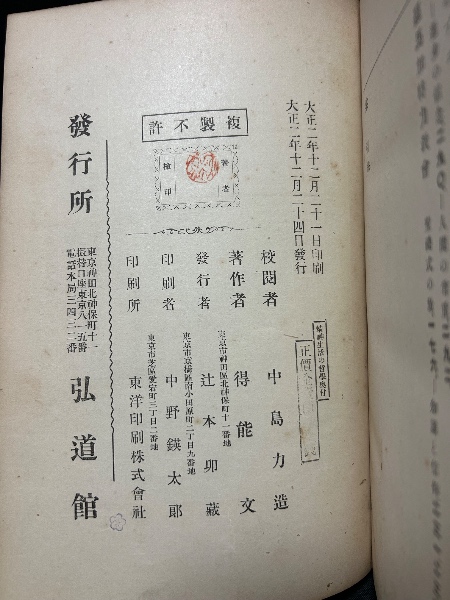 大正二年十二月二十一日印刷
大正二年十二月二十四日發行
精神生活の哲學奧付
正價金
複製不許
著者
檢印
校閲者 中島力造
著作者 得能文
東京市神田區北神保町十一番地
發行者 辻本卯藏
東京市京橋區南小田原町二丁目九番地
印刷者 中野鍈太郎
東京市芝區愛宕町三丁目二番地
印刷所 東洋印刷株式會社
發行所
東京神田北神保町十一
振替口座東京八一五番
電話本局三四二二番
弘道館